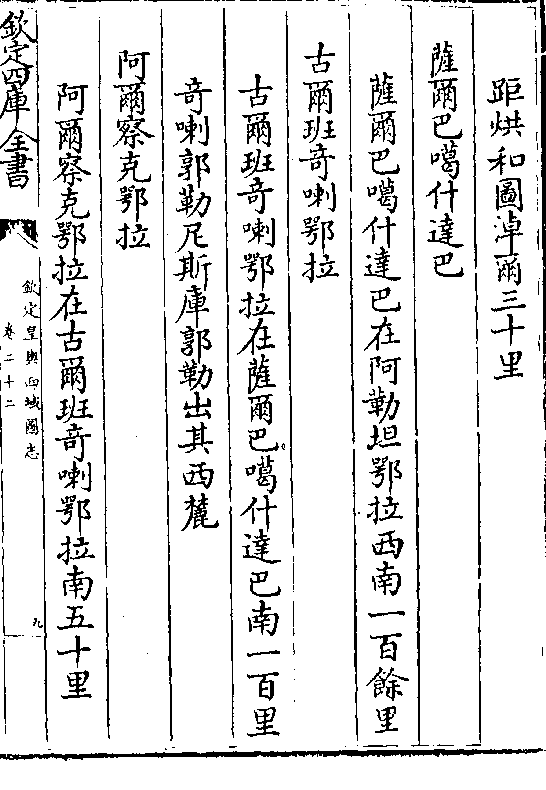 距烘和圖淖爾三十里
薩爾巴噶什達巴
薩爾巴噶什達巴在阿勒坦鄂拉西南一百餘里
古爾班竒喇鄂拉
古爾班竒喇鄂拉在薩爾巴噶什達巴南一百里
竒喇郭勒尼斯庫郭勒出其西麓
阿爾察克鄂拉
阿爾察克鄂拉在古爾班竒喇鄂拉南五十里
欽定四庫全書
欽定皇輿西域圖志
卷二十二
九